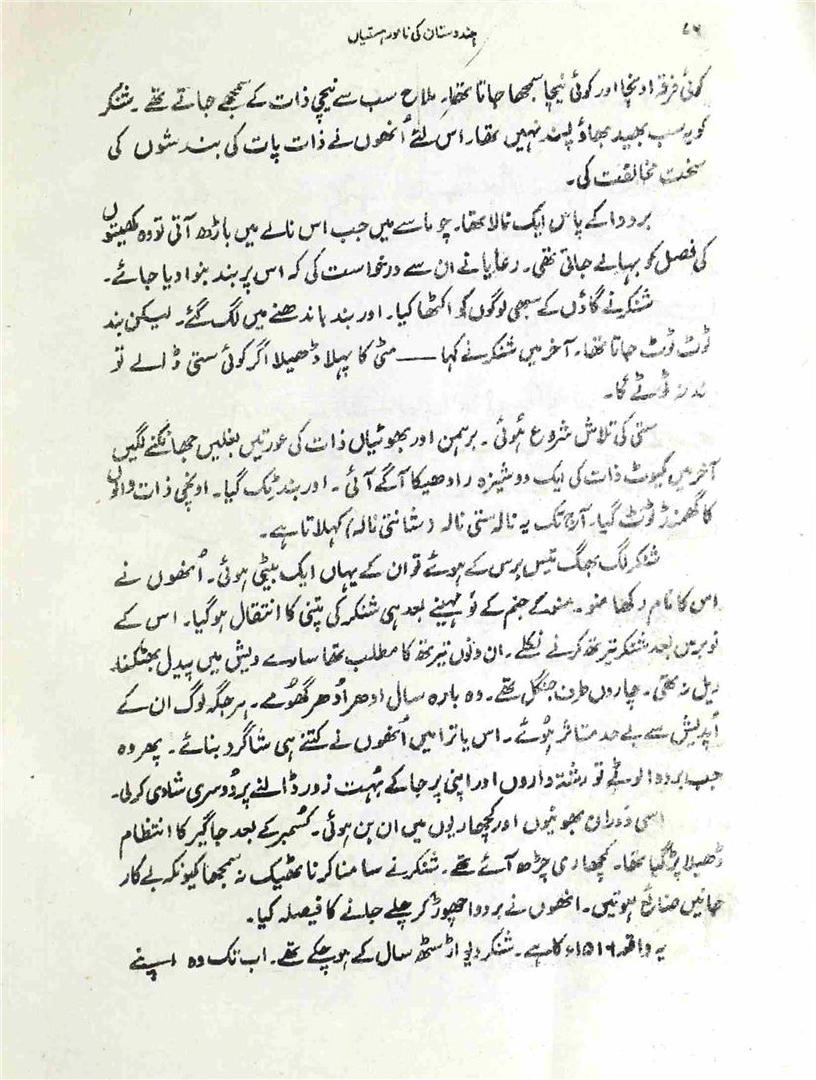 ۷۶ ہندوستان کی نامور ہستیاں
کوئی فرقہ اونچا اور کوئی نیچا سمجھا جاتا تھا۔ ملاح سب سے نیچی ذات کے سمجھے جاتے تھے۔ شنکر
کو یہ سب بھید بھاؤ پسند نہیں تھا۔ اس لئے اُنھوں نے ذات پات کی بندشوں کی
سخت مخالفت کی۔
بردوا کے پاس ایک نالا تھا۔ چوماسے میں جب اس نالے میں باڑھ آتی تو وہ کھیتوں
کی فصل کو بہالے جاتی تھی۔ رعایا نے ان سے درخواست کی کہ اس پر بند بنوا دیا جائے۔
شنکر نے گاؤں کے سبھی لوگوں کو اکٹھا کیا۔ اور بند باندھنے میں لگ گئے۔ لیکن بند
ٹوٹ ٹوٹ جاتا تھا۔ آخر میں شنکر نے کہا —— مٹی کا پہلا ڈھیلا اگر کوئی ستی ڈالے تو
بند نہ ٹوٹے گا۔
ستی کی تلاش شروع ہوئی۔ برہمن اور بھوئیاں ذات کی عورتیں بغلیں جھانکنے لگیں
آخر میں کیوٹ ذات کی ایک دوشیزہ رادھیکا آگے آئی۔ اور بند ٹِک گیا۔ اونچی ذات والوں
کا گھمنڈ ٹوٹ گیا۔ آج تک یہ نالہ ستی نالہ (شانتی نالہ) کہلاتا ہے۔
شنکر لگ بھگ تیس برس کے ہوئے تو ان کے یہاں ایک بیٹی ہوئی۔ اُنھوں نے
اس کا نام رکھا منو۔ منو کے جنم کے نو مہینے بعد ہی شنکر کی پتنی کا انتقال ہو گیا۔ اس کے
نو برس بعد شنکر تیرتھ کرنے نکلے۔ ان دنوں تیرتھ کا مطلب تھا سارے دیش میں پیدل بھٹکنا۔
ریل نہ تھی۔ چاروں طرف جنگل تھے۔ وہ بارہ سال ادھر اُدھر گھومے۔ ہر جگہ لوگ ان کے
اُپدیش سے بے حد متاثر ہوئے۔ اس یاترا میں اُنھوں نے کتنے ہی شاگرد بنائے۔ پھر وہ
جب بردوا لوٹے تو رشتہ داروں اور اپنی پرجا کے بُہت زور ڈالنے پر دُوسری شادی کر لی۔
اسی دَوران بھوئیوں اور کچھاریوں میں ان بن ہوئی۔ کسُمبر کے بعد جاگیر کا انتظام
ڈھیلا پڑ گیا تھا۔ کچھاری چڑھ آئے تھے۔ شنکر نے سامنا کرنا ٹھیک نہ سمجھا کیونکہ بے کار
جانیں ضائع ہوتیں۔ انھوں نے بردوا چھوڑ کر چلے جانے کا فیصلہ کیا۔
یہ واقعہ ۱۵۱۶ء کا ہے۔ شنکر دیو اڑسٹھ سال کے ہو چکے تھے۔ اب تک وہ اپنے